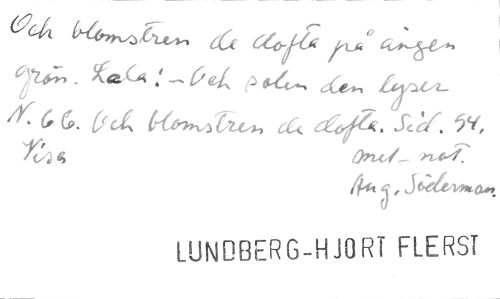 Och blomstren de dofta på ängen
grön. Lala! - Och solen den lyser
N. 66. Och blomstren de dofta. Sid. 54.
Visa
mel-not.
Aug. Söderman.
LUNDBERG-HJORT FLERST